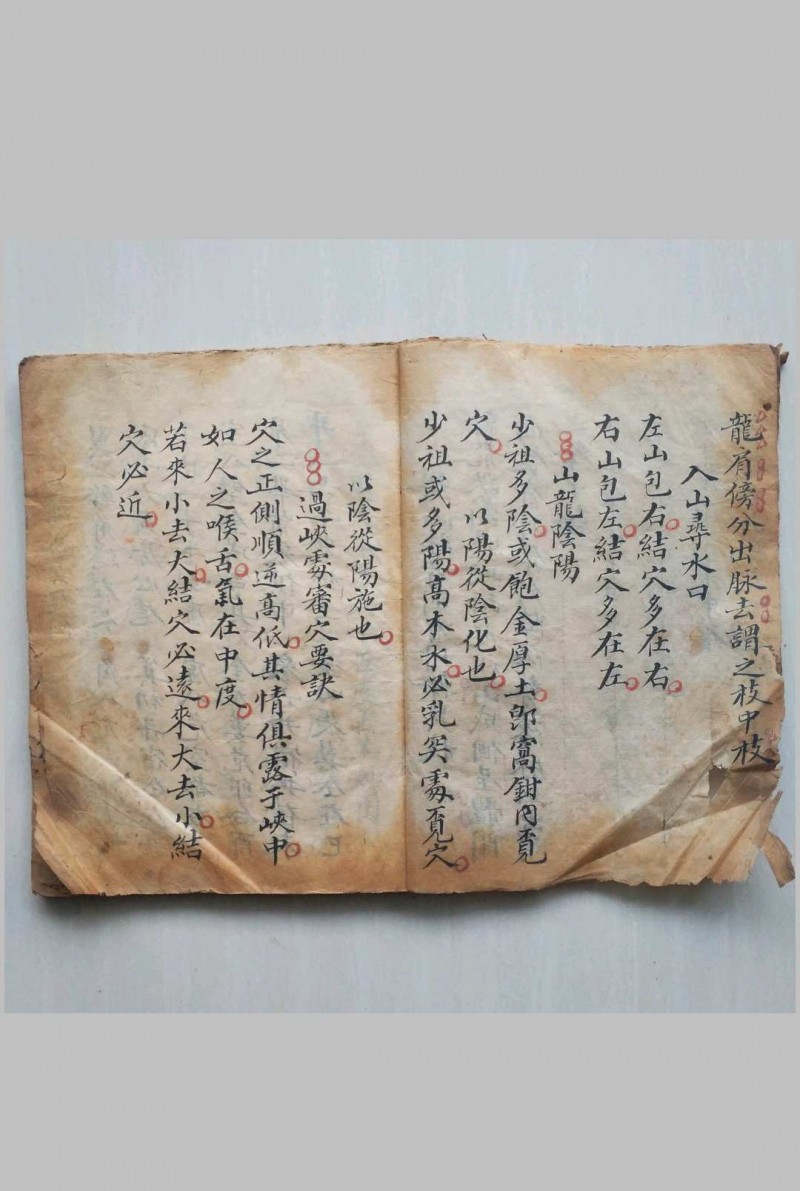 龍肩傍分出脉去謂之枝中枝
入山尋水口
左山包右結穴多在右
右山包左結穴多在左
山龍陰陽
少祖多陰或飽金厚土郎窩鉗內覔
穴 以陽從陰化也
少祖或多陽高木水必乳突䖏覔穴
以陰從陽施也
過峽䖏審穴要訣
穴之正側順逆高低其情俱露于峽中
如人之喉舌氣在中度
若來小去大結穴必遠來大去小結
穴必近